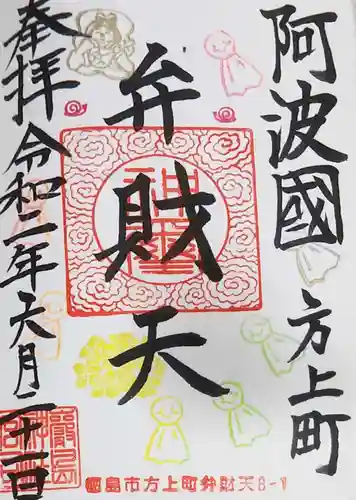 阿波國 方上町
弁財天
奉拝 令和二年六月二十一日
島市方上町弁財天8-1